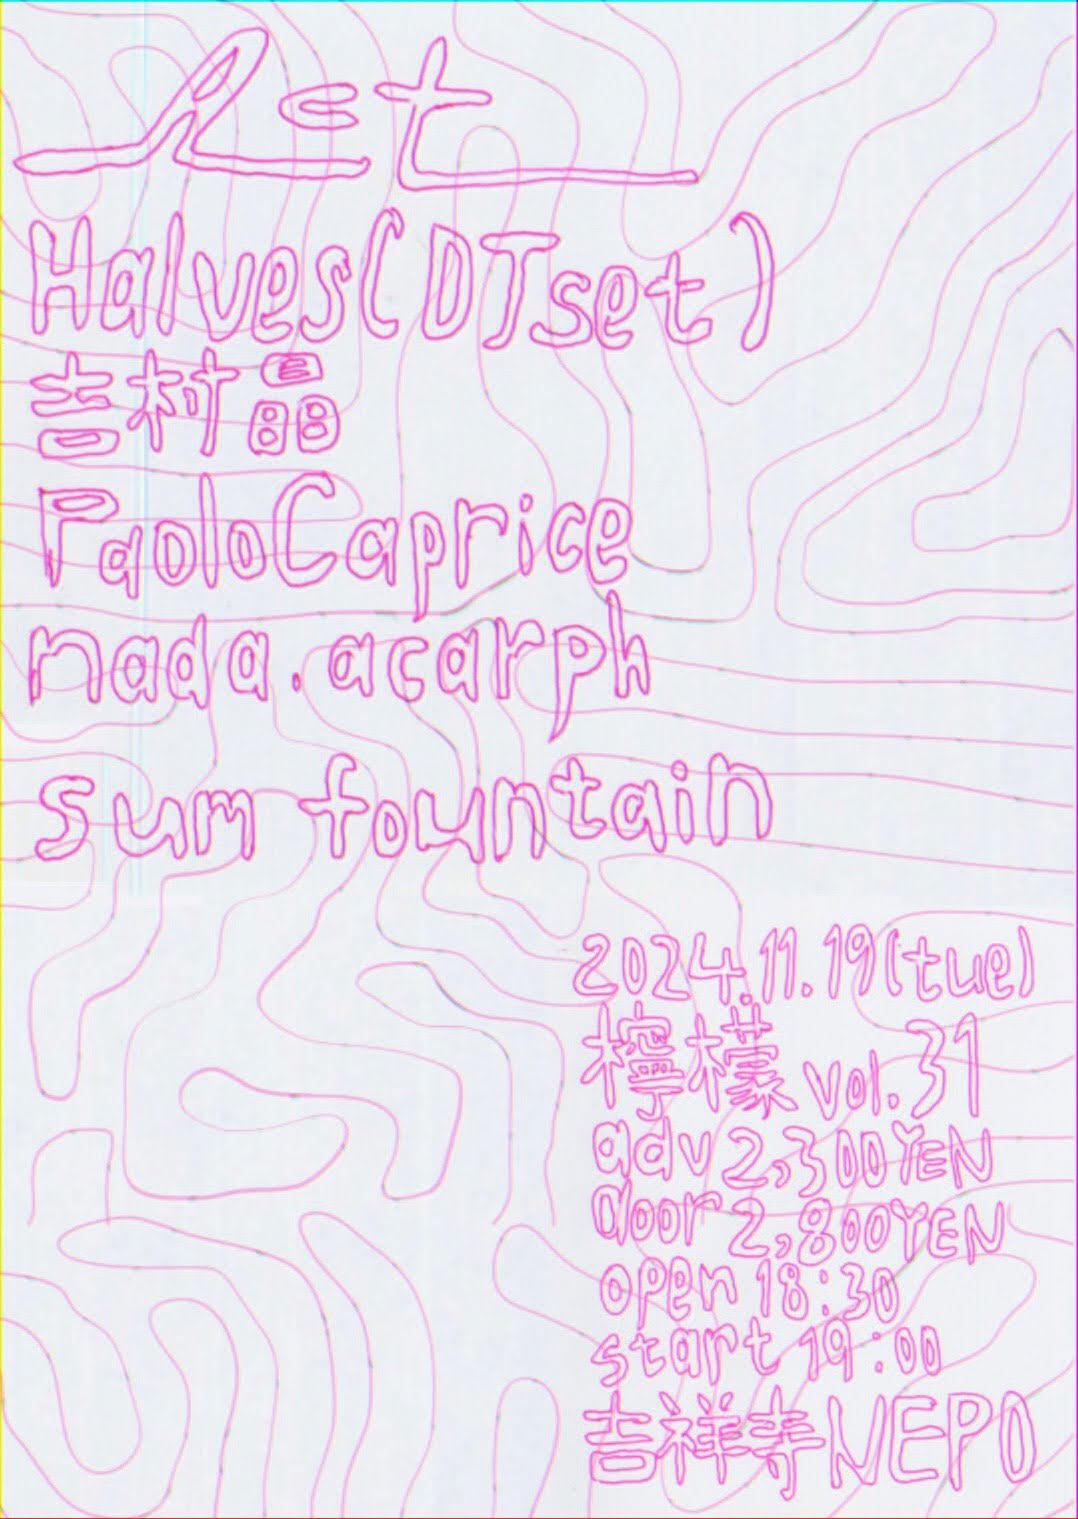 Halves(DJset)
吉村晶
PaoloCaprice
nada.acarph
sum fountain
2024.11.19(tue)
檸檬 vol.31
adv 2,300YEN
door 2,800YEN
open 18:30
start 19:00
吉祥寺NEPO